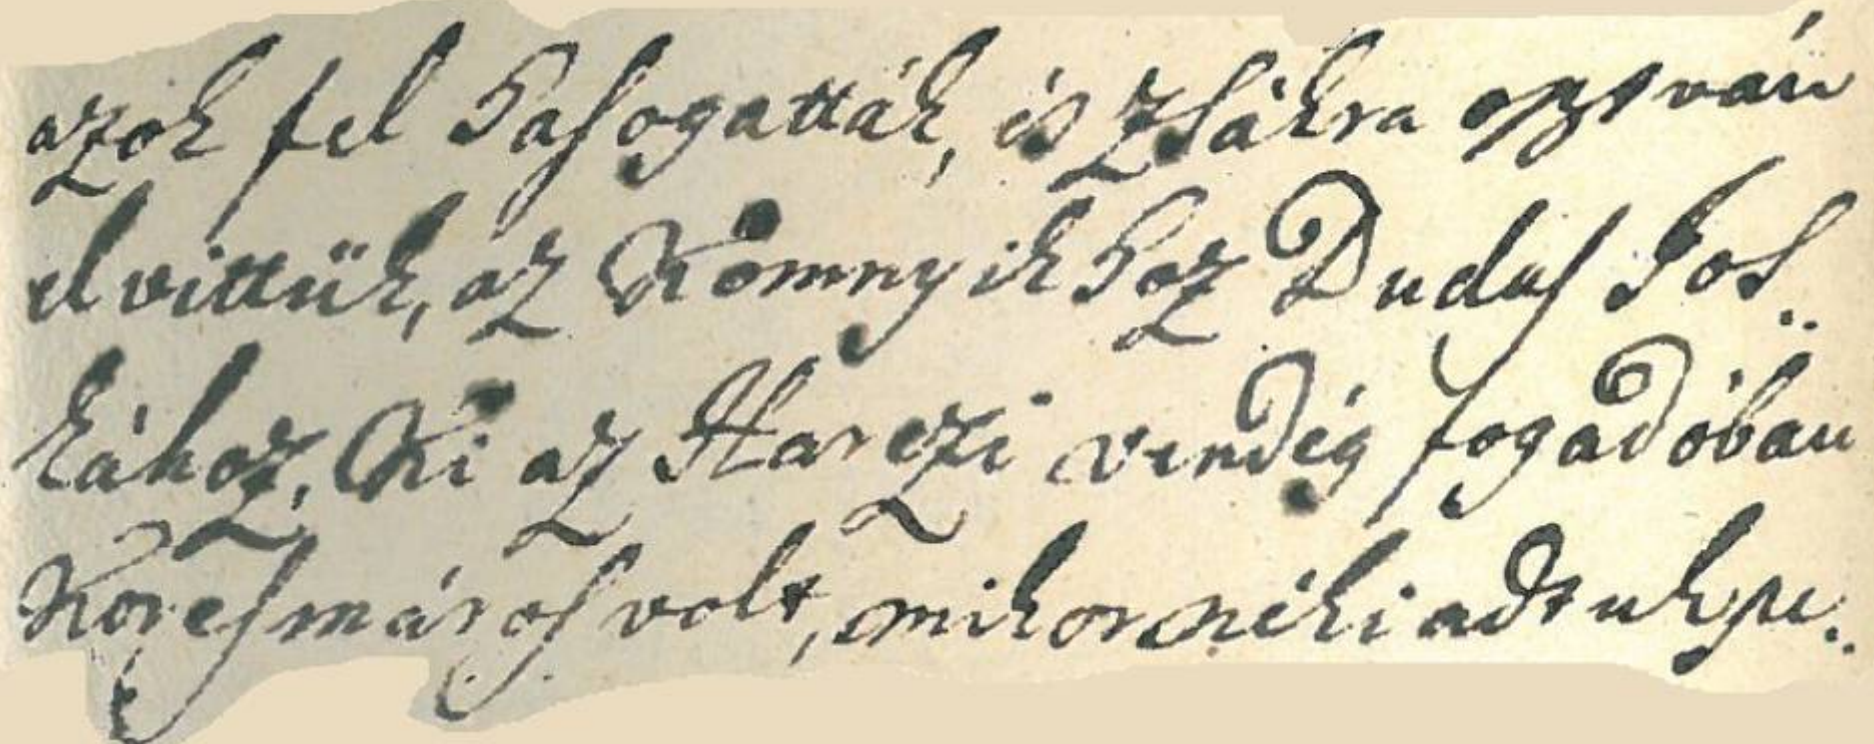 azok fel hasogatták, és zsákra osztván
elvittük, az Komnyikhoz Dudas Jos..
kához, Ki az Harczi vendég fogadóban
Korcsmáros volt, mikor néki adtuk pe..